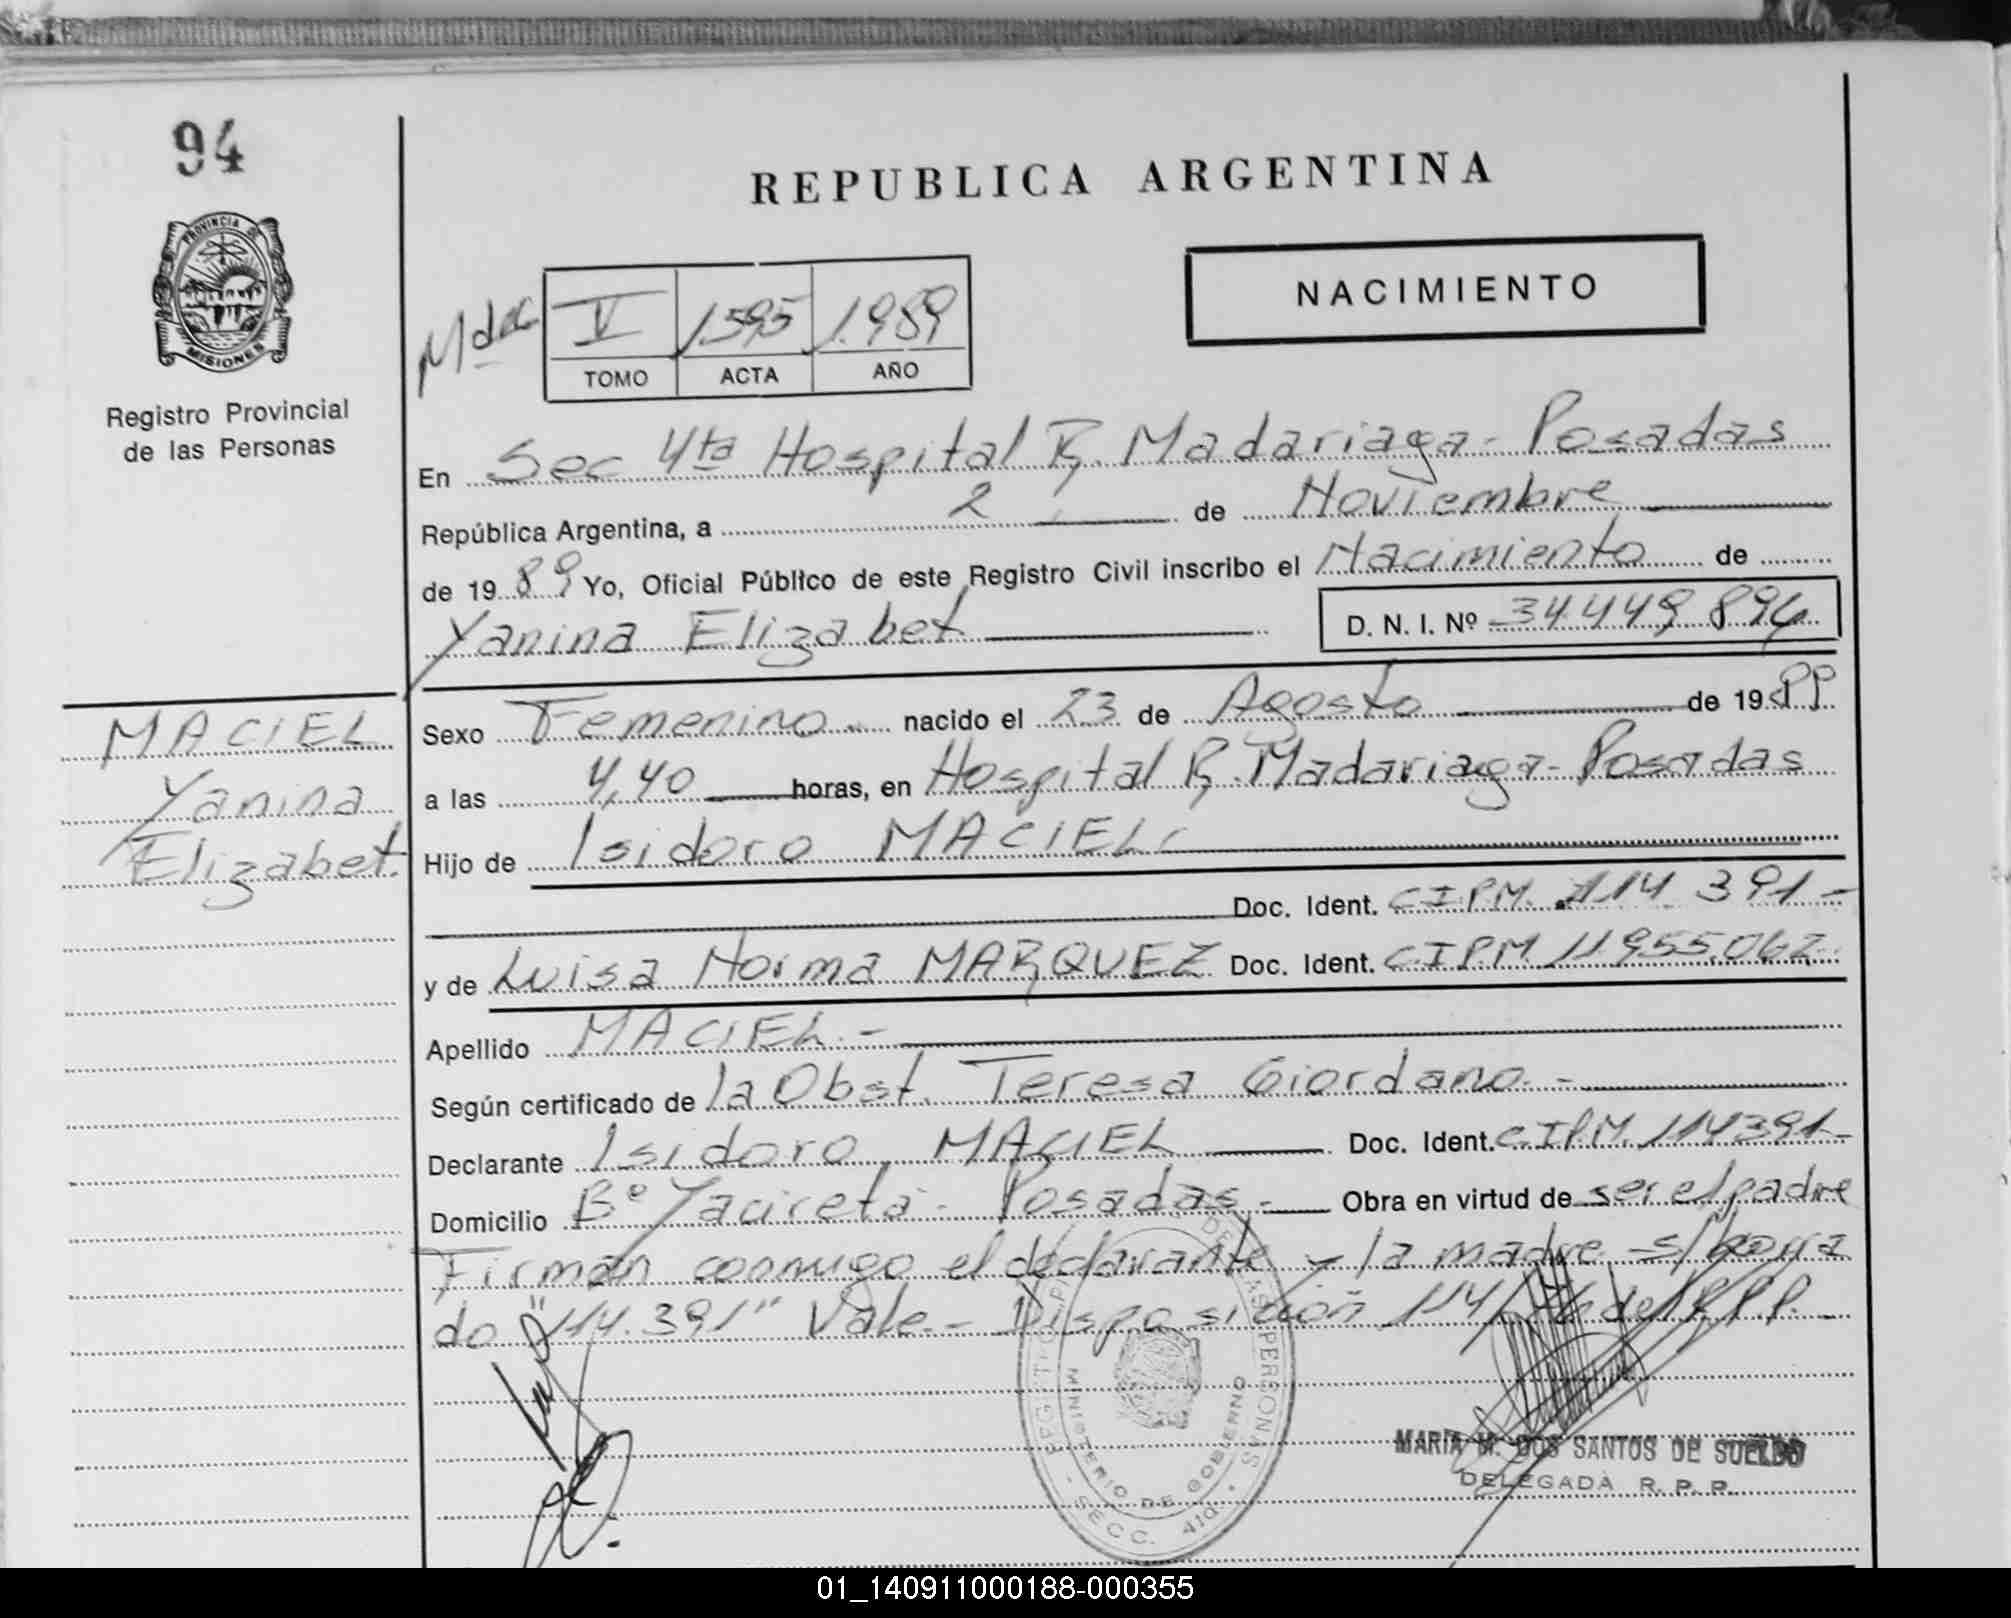 94
REPUBLICA ARGENTINA
PROVINCIA DE
MISIONES
NACIMIENTO
V 1.595 1.989
TOMO ACTA AÑO
Registro Provincial
de las Personas
En Sec 4ta Hospital R. Madariaga - Posadas
República Argentina, a 2 de Noviembre
de 1989 Yo, Oficial Público de este Registro Civil inscribo el Nacimiento de
Yanina Elizabet D. N. I. Nº 34.449.894
MACIEL
Yanina
Elizabet.
Sexo Femenino nacido el 23 de Agosto de 1989
a las 4,40 horas, en Hospital R. Madariaga - Posadas
Hijo de Isidoro MACIEL
Doc. Ident. C.I.P.M. 114.391-
y de Luisa Norma MARQUEZ Doc. Ident. C.I.P.M. 11.955.062
Apellido MACIEL.-
Según certificado de la Obst. Teresa Giordano.-
Declarante Isidoro MACIEL Doc. Ident. C.I.P.M. 114391-
Domicilio Bº Yacireta - Posadas.- Obra en virtud de ser el padre
Firman conmigo el declarante y la madre - s/borra
do "114.391" Vale.- Disposición 114/ del R.P.P.
REGISTRO DE LAS PERSONAS
MINISTERIO DE GOBIERNO
SECC. 4ta.
MARIA M. DOS SANTOS DE SUELDO
DELEGADA R. P. P.
01_140911000188-000355